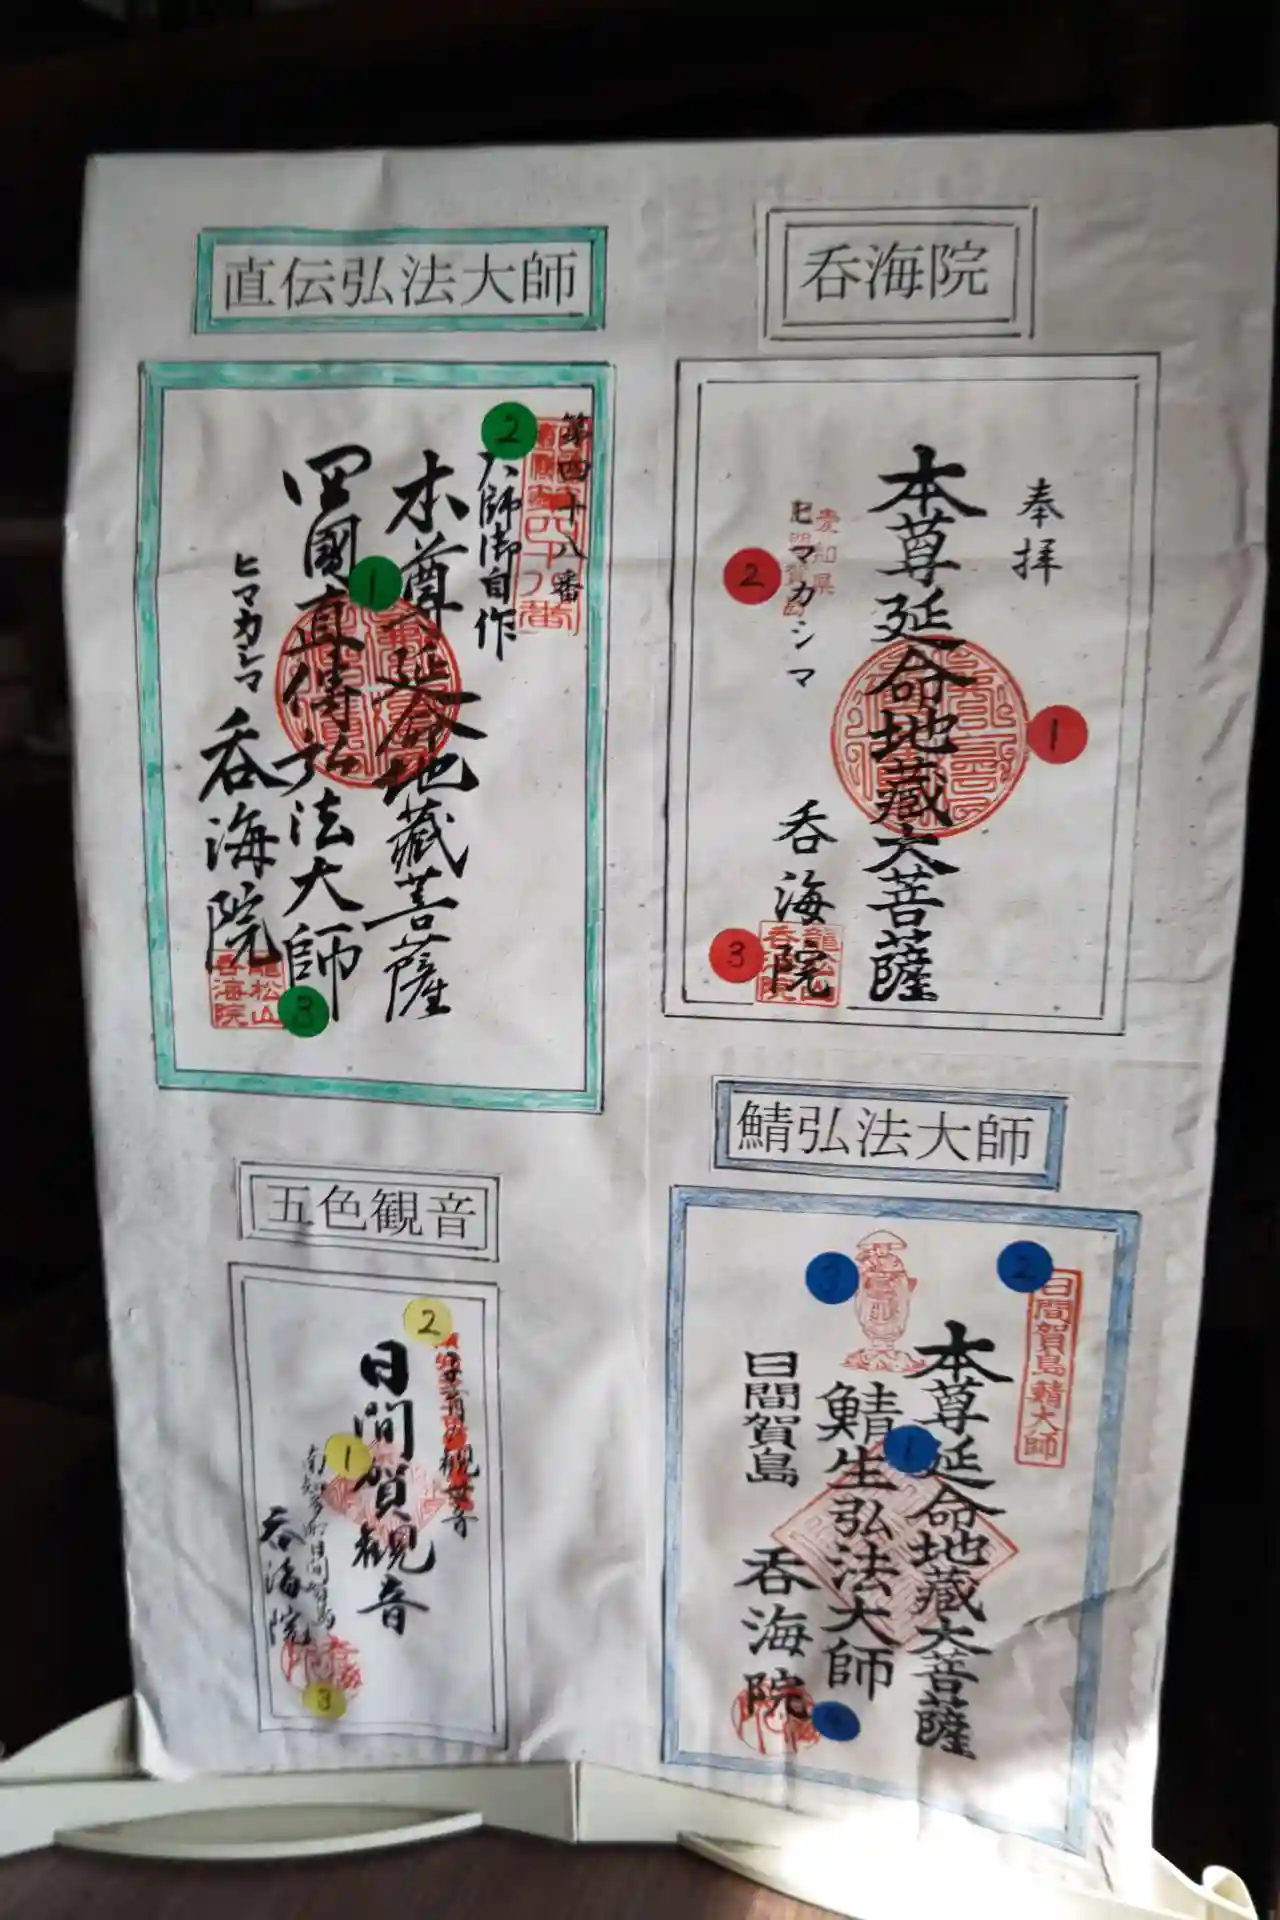 直伝弘法大師
②
第四十八番
大師御自作
本尊延命地蔵菩薩
①
四國直傳弘法大師
ヒマカシマ
呑海院
龍松山
呑海院
③
呑海院
奉拝
本尊延命地蔵大菩薩
①
愛知県
②
ヒマカシマ
呑海院
③
龍松山
呑海院
五色観音
②
日間賀観音
①
南知多町日間賀島
呑海院
③
鯖弘法大師
②
日間賀島鯖大師
本尊延命地蔵大菩薩
①
③
鯖生弘法大師
日間賀島
呑海院